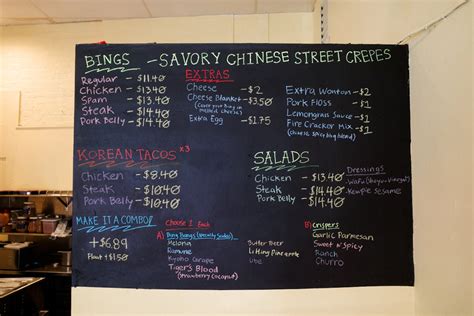 BINGS - SAVORY CHINESE STREET CREPES
Regular - $11.40
Chicken - $13.40
Spam - $13.40
Steak - $14.40
Pork Belly - $14.40
EXTRAS
Cheese - $2
Cheese Blanket - $3.50
(cover your bing in melted cheese)
Extra Egg - $1.75
Extra Wonton - $2
Pork Floss - $2
Lemongrass Sauce - $1
Fire Cracker Mix - $1
(cheese spicy bing blend)
KOREAN TACOS x3
Chicken - $9.40
Steak - $10.40
Pork Belly - $10.40
SALADS
Chicken $13.40
Steak - $14.40
Pork Belly $14.40
Dressings
- Wafu
- Kewpie Sesame
MAKE IT A COMBO!
+$6.89
Float +$1.50
Choose 1 Each
A) Bing Bangs (specialty sodas)
Melona
Ramune
Kyoho Grape
Tiger's Blood
(strawberry coconut)
Butter Beer
Lilting Pineapple
Ube
B) Crispers
Garlic Parmesan
Sweet n' Spicy
Ranch
Churro